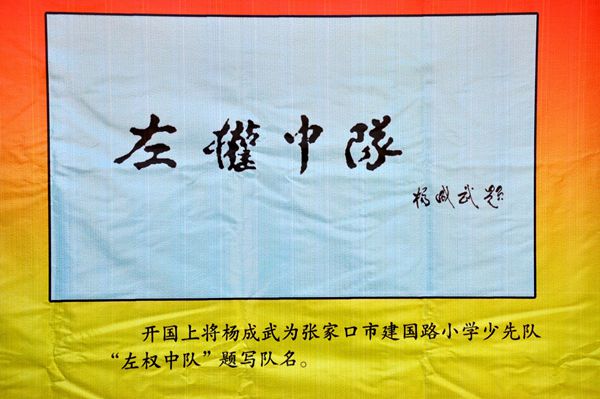 左權中隊
杨成武题
开国上将杨成武为张家口市建国路小学少先队
“左权中队”题写队名。